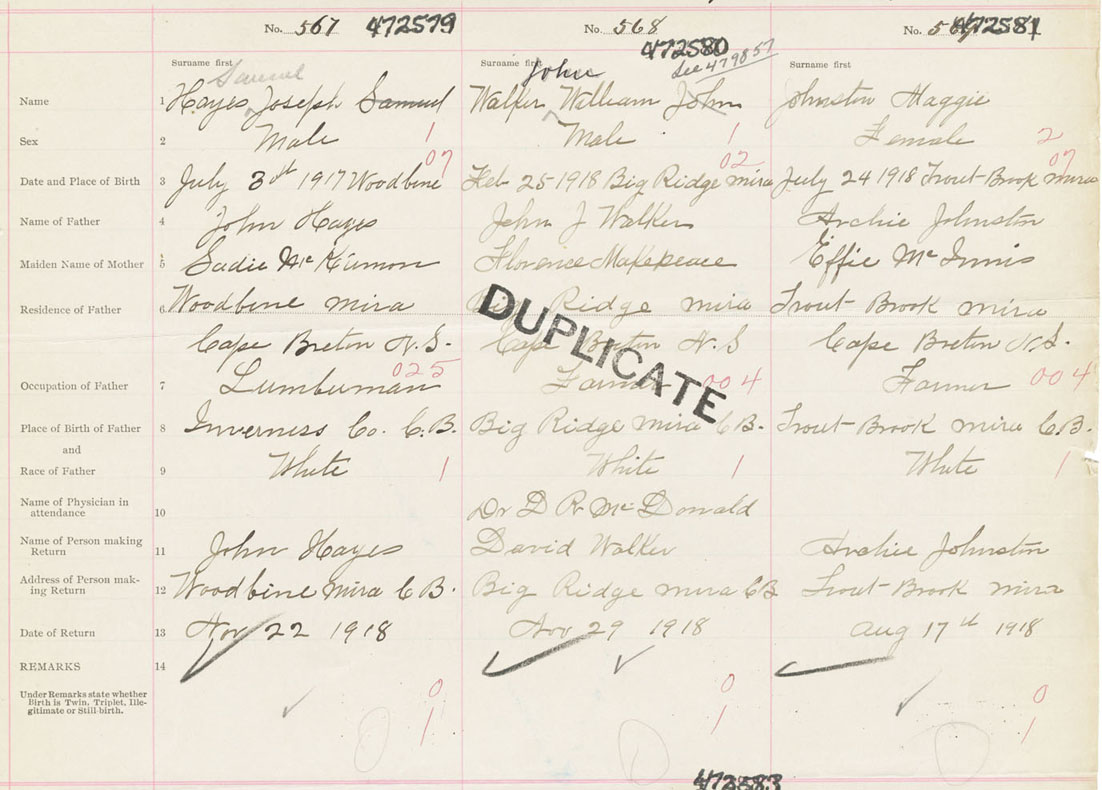 No. 567 472579 No. 568 472580 No. 569 472581
see 479857
Surname first Surname first Surname first
Samuel John
Name 1 Hayes Joseph Samuel Walker William John Johnston Maggie
Sex 2 Male 1 Male 1 Female 2
07 02 07
Date and Place of Birth 3 July 3rd 1917 Woodbine Feb 25 1918 Big Ridge mira July 24 1918 Trout Brook mira
Name of Father 4 John Hayes John J Walker Archie Johnston
Maiden Name of Mother 5 Sadie Mc Kinnon Florence Makepeace Effie Mc Innis
Residence of Father 6 Woodbine mira Big Ridge mira Trout Brook mira
DUPLICATE
Cape Breton N.S. Cape Breton N.S Cape Breton N.S.
Occupation of Father 7 Lumberman 025 Farmer 004 Farmer 004
Place of Birth of Father 8 Inverness Co. C.B. Big Ridge mira C B. Trout Brook mira C.B.
and
Race of Father 9 White 1 White 1 White 1
Name of Physician in
attendance 10 Dr D R Mc Donald
Name of Person making
Return 11 John Hayes David Walker Archie Johnston
Address of Person mak-
ing Return 12 Woodbine Mira C B. Big Ridge mira C B Trout Brook mira
Date of Return 13 Nov 22 1918 Nov 29 1918 Aug 17th 1918
REMARKS 14
Under Remarks state whether
Birth is Twin, Triplet, Ille-
gitimate or Still-birth.
0 0 0
1 1 1
472583